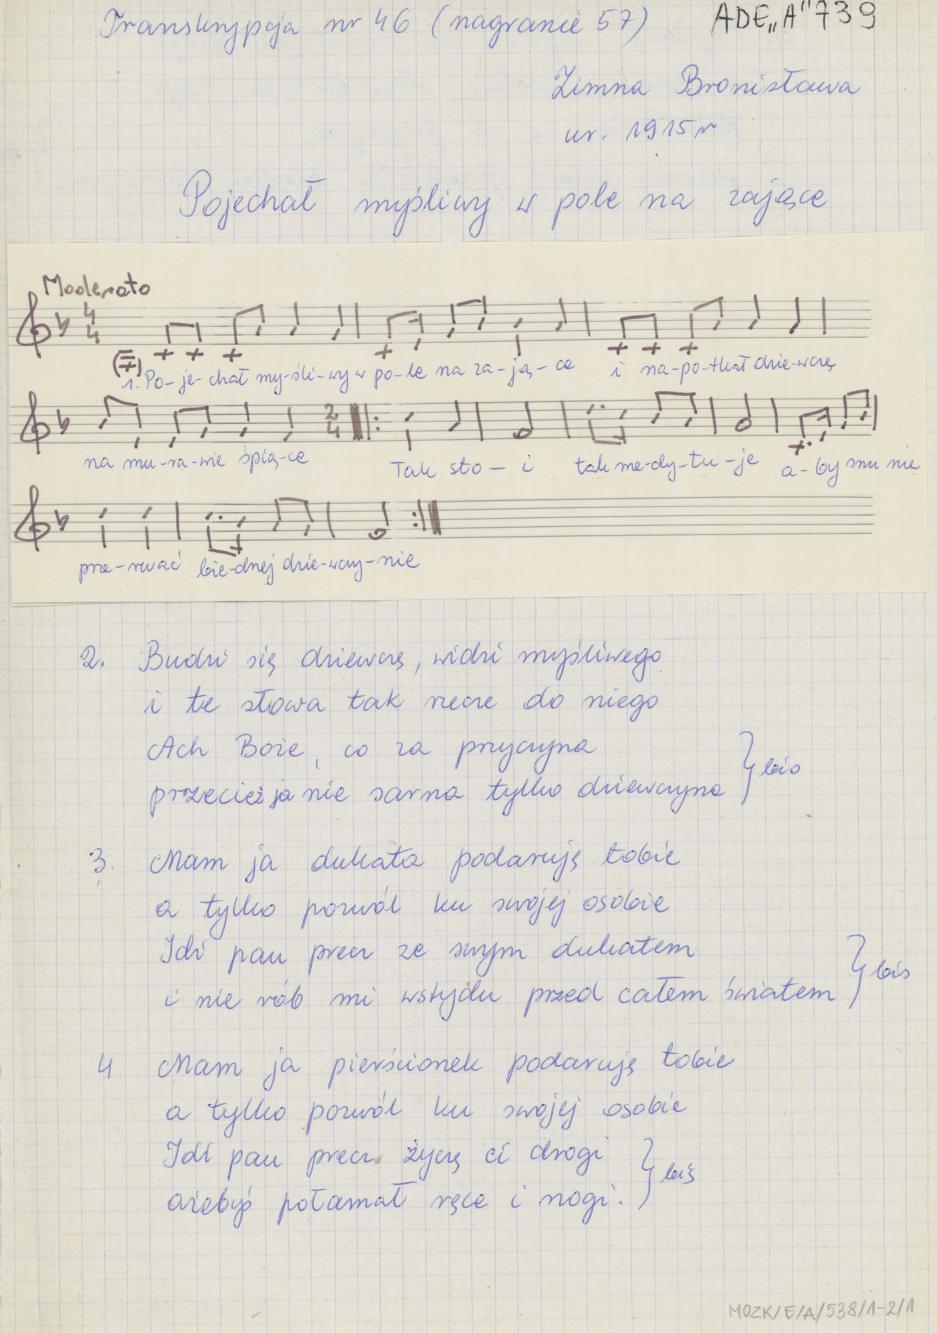 Transkrypcja nr 46 (nagranie 57) ADE„A"739
Zimna Bronisława
ur. 1915r
Pojechał myśliwy w pole na zające
Moderato
4
4
1. Po-je-chał my-śli-wy w po-le na za-ją-ce i na-po-tkał dzie-wczę
2
4
na mu-ra-wie śpią-ce Tak sto-i tak me-dy-tu-je a-by mu nie
prze-rwać bie-dnej dzie-wczy-nie
2. Budzi się dziewczę, widzi myśliwego
i te słowa tak rzecze do niego
Ach Boże, co za przyczyna
przecież ja nie sarna tylko dziewczyna } bis
3. Mam ja dukata podaruję tobie
a tylko pozwól ku swojej osobie
Idź pan precz ze swym dukatem
i nie rób mi wstydu przed całem światem } bis
4 Mam ja pierścionek podaruję tobie
a tylko pozwól ku swojej osobie
Idź pan precz życzę ci drogi
ażebyś połamał ręce i nogi. } bis
MOZK/E/A/538/1-2/1